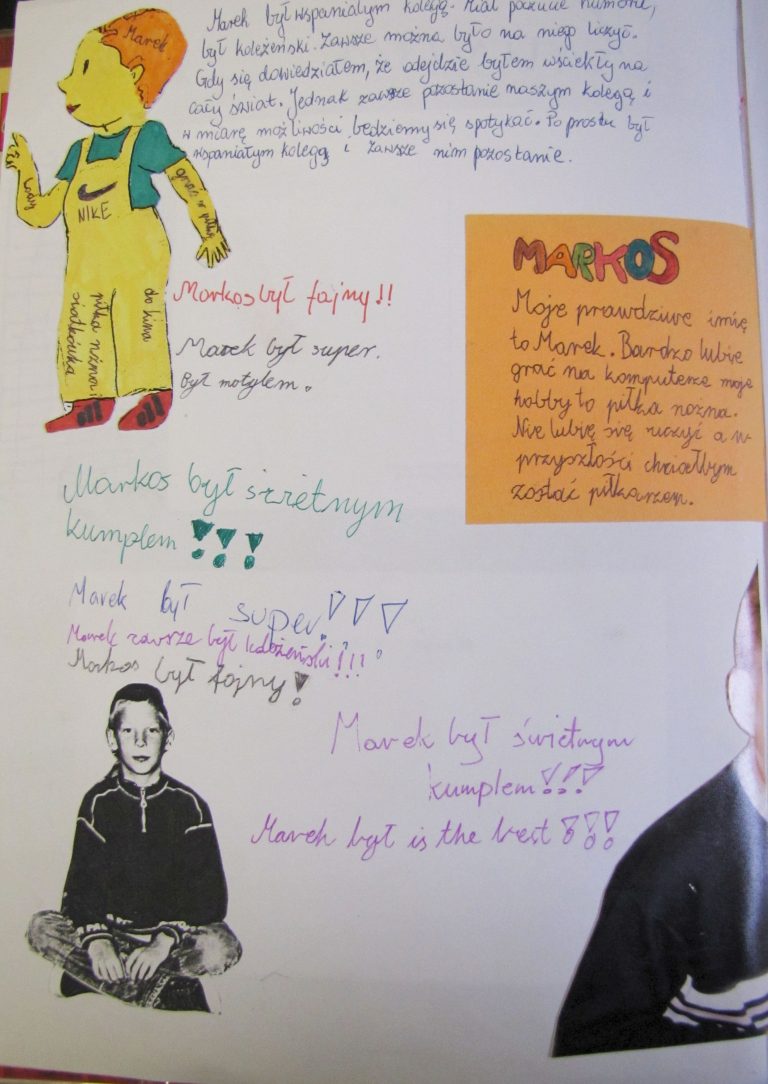 Marek był wspaniałym kolegą. Miał poczucie humoru,
był koleżeński. Zawsze można było na niego liczyć.
Gdy się dowiedziałem, że odejdzie byłem wściekły na
cały świat. Jednak zawsze pozostanie naszym kolegą i
w miarę możliwości będziemy się spotykać. Po prostu był
wspaniałym kolegą i zawsze nim pozostanie.
Marek
NIKE
grać w piłkę
do kina
piłka nożna i
siatkówka
Markos był fajny!!
Marek był super.
Był motylem.
MARKOS
Moje prawdziwe imię
to Marek. Bardzo lubię
grać na komputerze moje
hobby to piłka nożna.
Nie lubię się uczyć a w
przyszłości chciałbym
zostać piłkarzem.
Markos był świetnym
kumplem!!!
Marek był super!!!
Marek zawsze był koleżeński!!!
Markos był fajny!
Marek był świetnym
kumplem!!!
Marek był is the best!!!